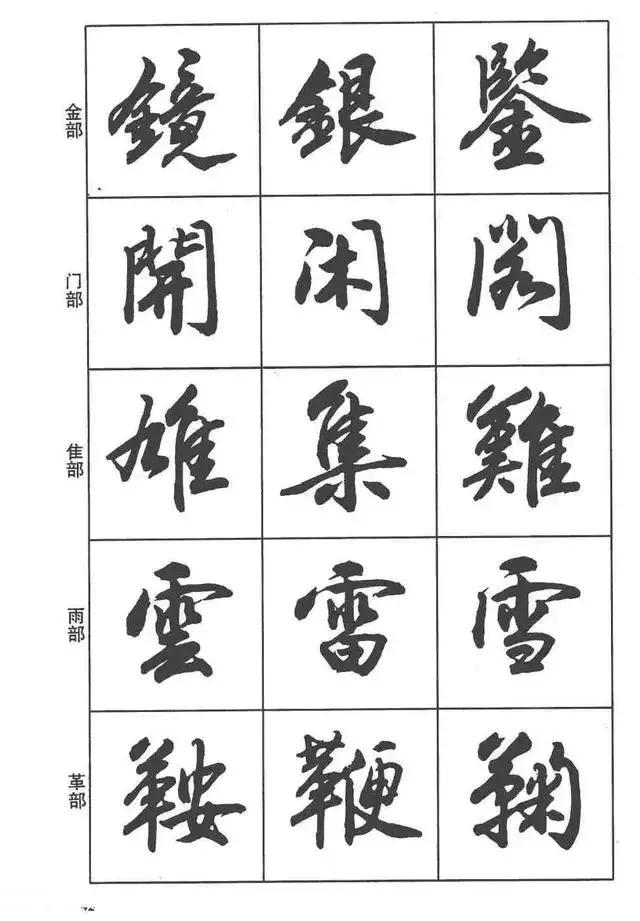 金部 鏡 銀 鑒
门部 開 闲 阁
隹部 雄 集 難
雨部 雲 雷 雪
革部 鞍 鞭 鞠